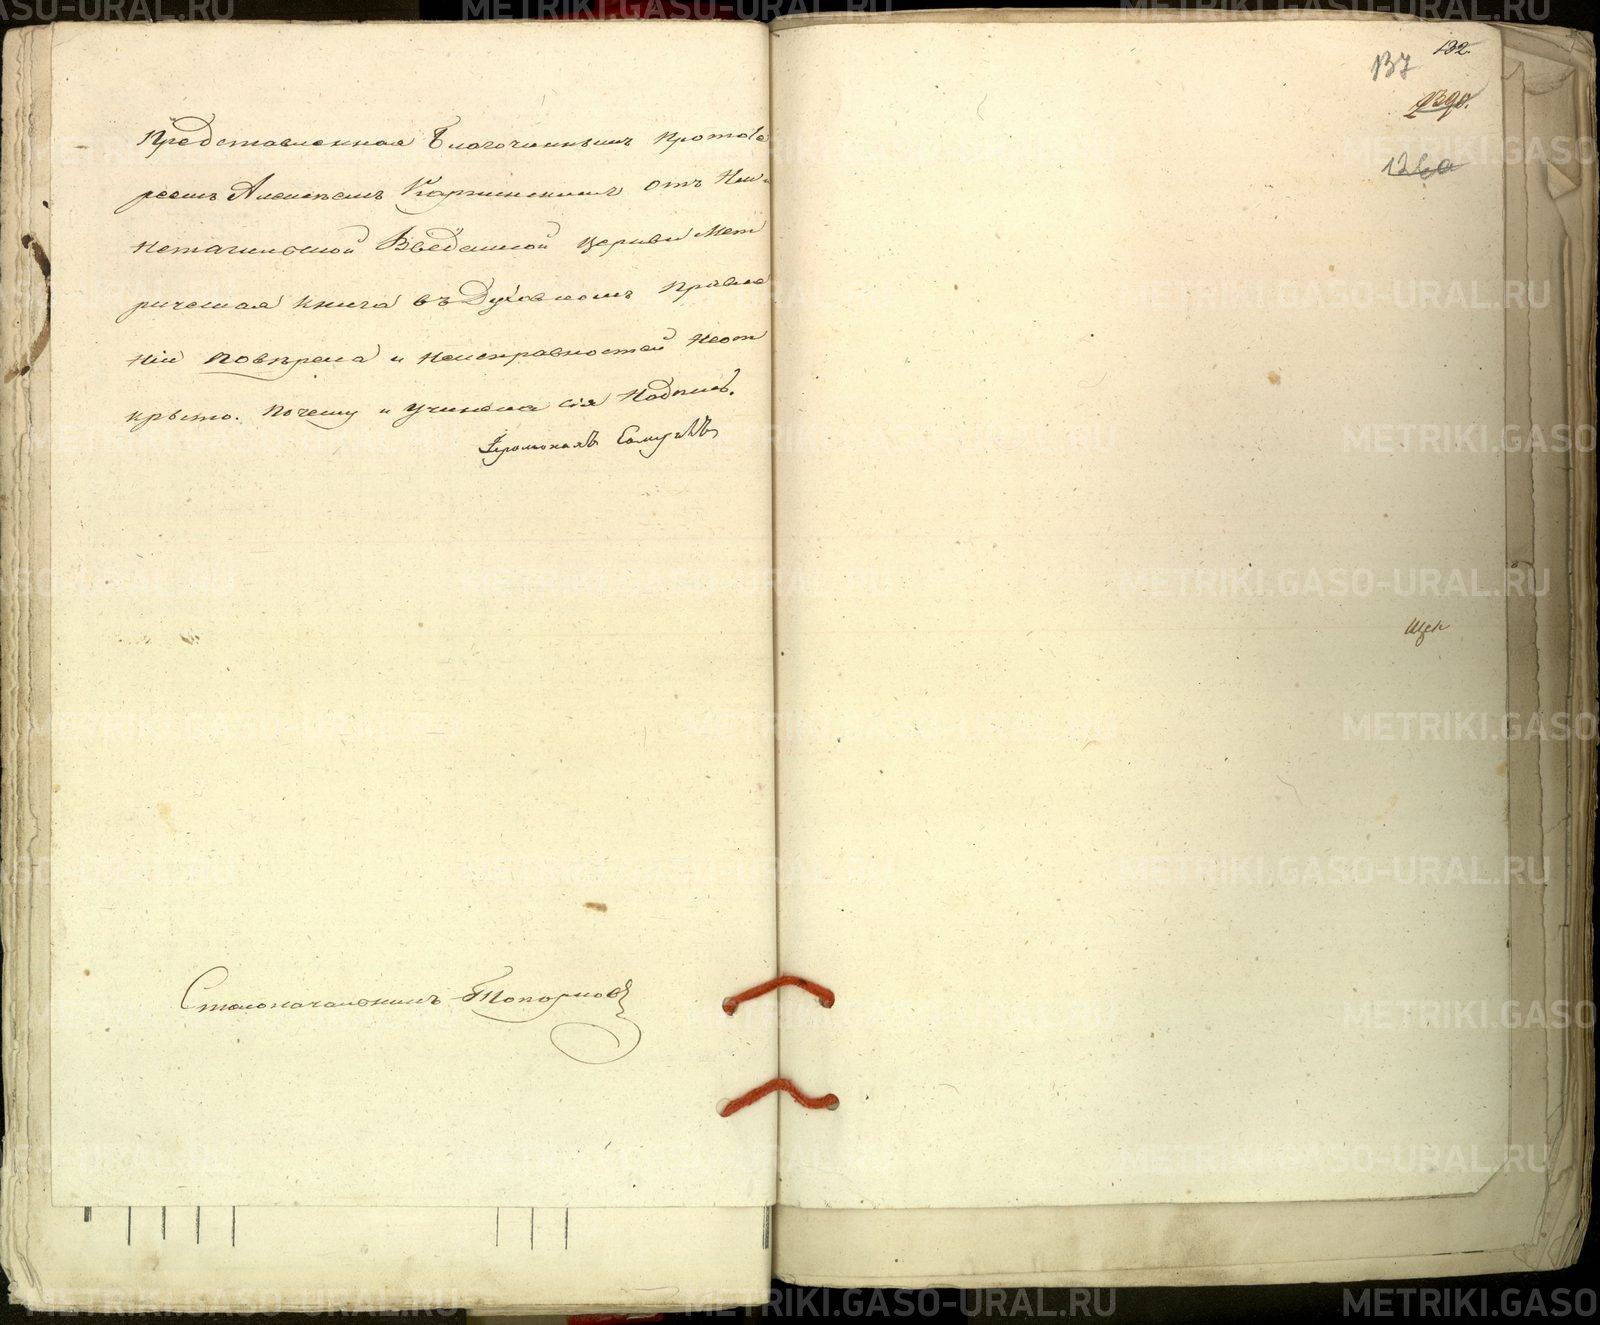 Представленная Благочиннымъ Протоіе
реемъ Алексѣемъ Карпинскимъ отъ Ниж
нетагильской Введенской церкви Мет
рическая книга въ Духовномъ Правле
ніи повѣрена и неисправностей неот
крыто. Почему и учинена сія надпись.
Іеромонахъ
Столоначальникъ Топорковъ
132
137
METRIKI.GASO-URAL.RU